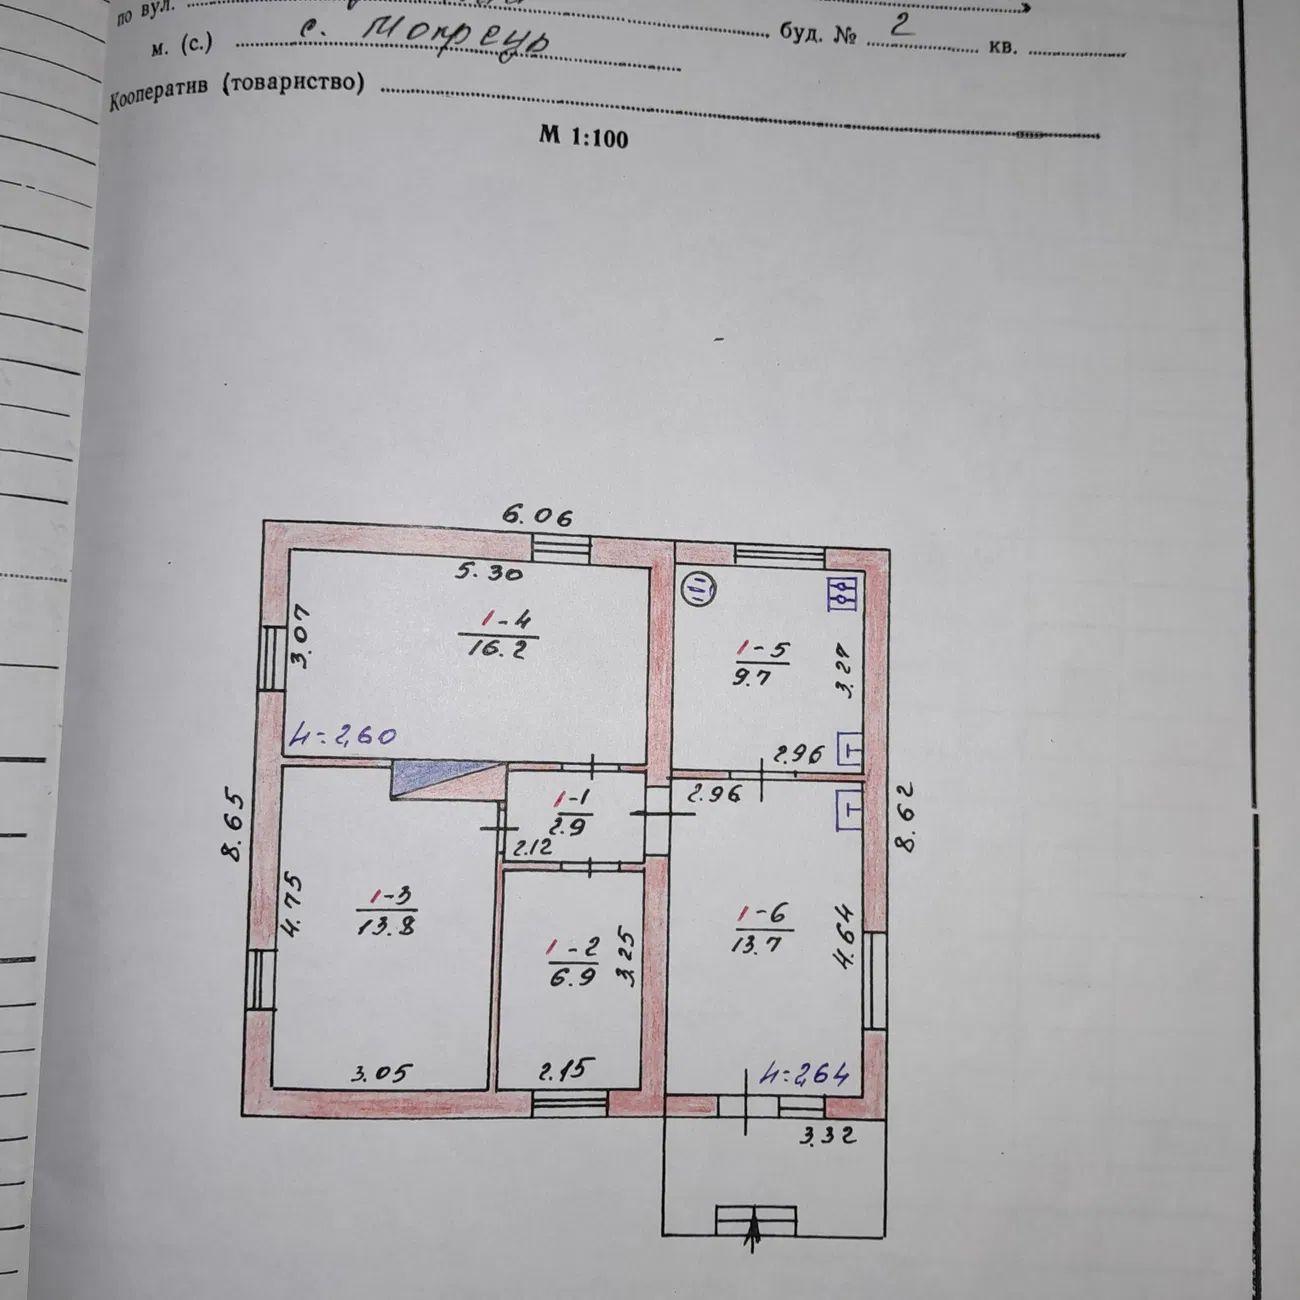 по вул.
буд. № 2 кв.
м. (с.) с. Мокрець
Кооператив (товариство)
М 1:100
6.06
5.30
3.07
1-4
16.2
h=2,60
1-5
9.7
3.27
2.96
2.96
1-1
2.9
2.12
8.65
8.62
4.75
1-3
13.8
3.05
1-2
6.9
3.25
2.15
1-6
13.7
4.64
h=2,64
3.32